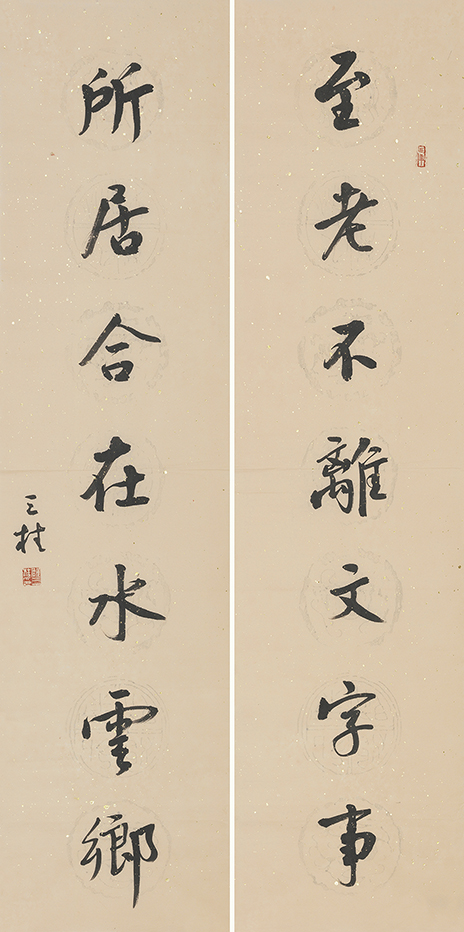 至老不離文字事
所居合在水雲鄉
三桂